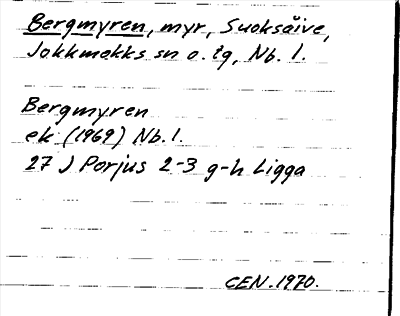 Bergmyren, myr, Suoksäive,
Jokkmokks sn o. tg, Nb. l.
Bergmyren
ek (1969) Nb. l.
27 J Porjus 2-3 g-h Ligga
CEN. 1970.